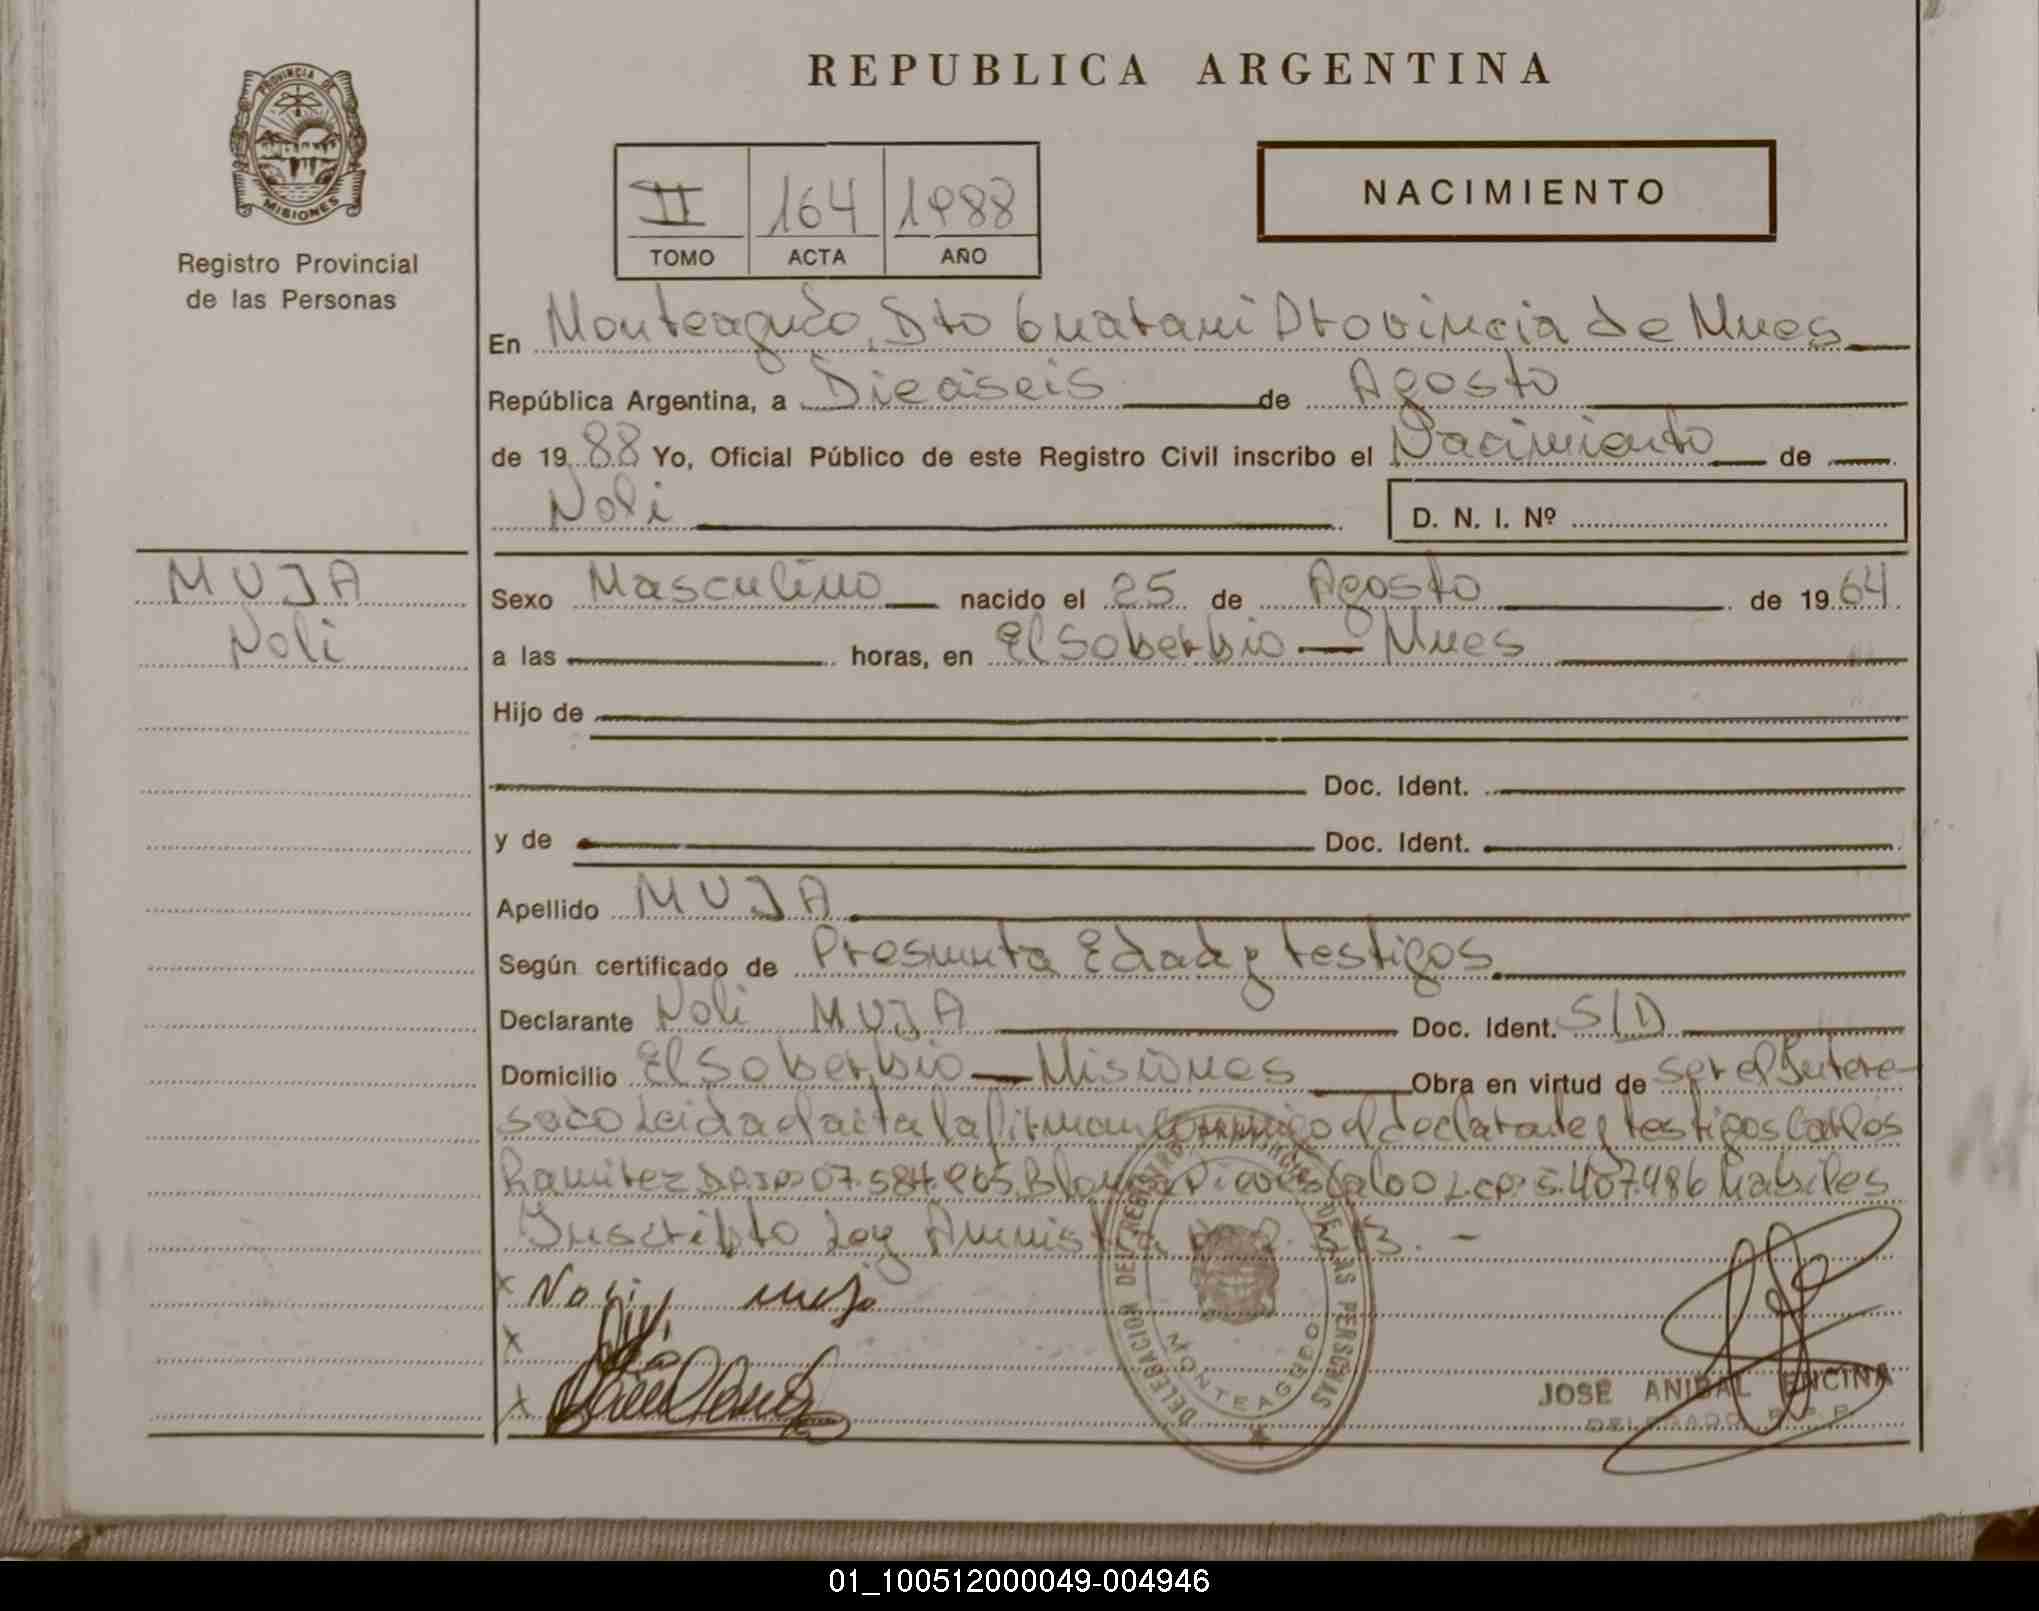 REPUBLICA ARGENTINA
PROVINCIA DE
MISIONES
Registro Provincial
de las Personas
II 164 1988
TOMO ACTA AÑO
NACIMIENTO
En Monteagudo, Dto Guarani Provincia de Mnes
República Argentina, a Dieciseis de Agosto
de 1988 Yo, Oficial Público de este Registro Civil inscribo el Nacimiento de
Noli
D. N. I. Nº
MUJA
Noli
Sexo Masculino nacido el 25 de Agosto de 1964
a las horas, en El Soberbio — Mnes
Hijo de
Doc. Ident.
y de Doc. Ident.
Apellido MUJA
Según certificado de Presunta Edad y testigos
Declarante Noli MUJA Doc. Ident. S/D
Domicilio El Soberbio — Misiones Obra en virtud de ser el Intere-
sado Leida el acta la firman conmigo el declarante y testigos Carlos
Ramirez 07.584.965 L.C. 5.407.486 habiles
Inscripto Ley
x Noli muja
x
x
DELEGACION DEL REGISTRO PROVINCIAL DE LAS PERSONAS
MONTEAGUDO
JOSE ANIBAL ENCINA
DELEGADO R.P.P.
01_100512000049-004946